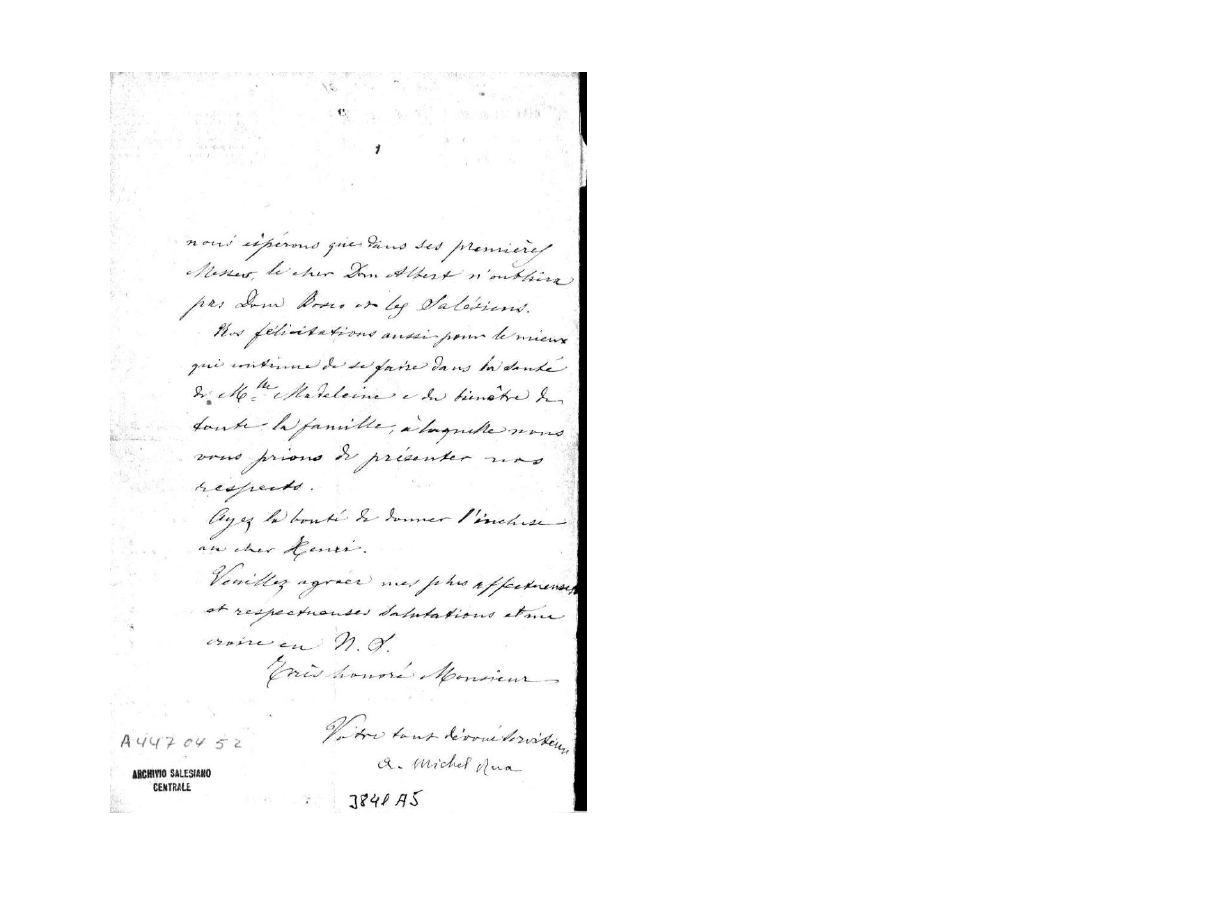 nous espérons que dans ses premières
Messes, le cher Dom Albert n'oubliera
pas Dom Bosco et les Salésiens.
Nos félicitations aussi pour le mieux
qui continue de se faire dans la santé
de M.lle Madeleine e du bienêtre de
toute la famille, à laquelle nous
vous prions de présenter nos
respects.
Ayez la bonté de donner l'incluse
au cher Henri.
Veuillez agréer mes plus affectueuses
et respectueuses salutations et me
croire en N. S.
Très honoré Monsieur
Votre tout dévoué serviteur
a. Michel Rua
A4470452
ARCHIVIO SALESIANO
CENTRALE
3841 A5